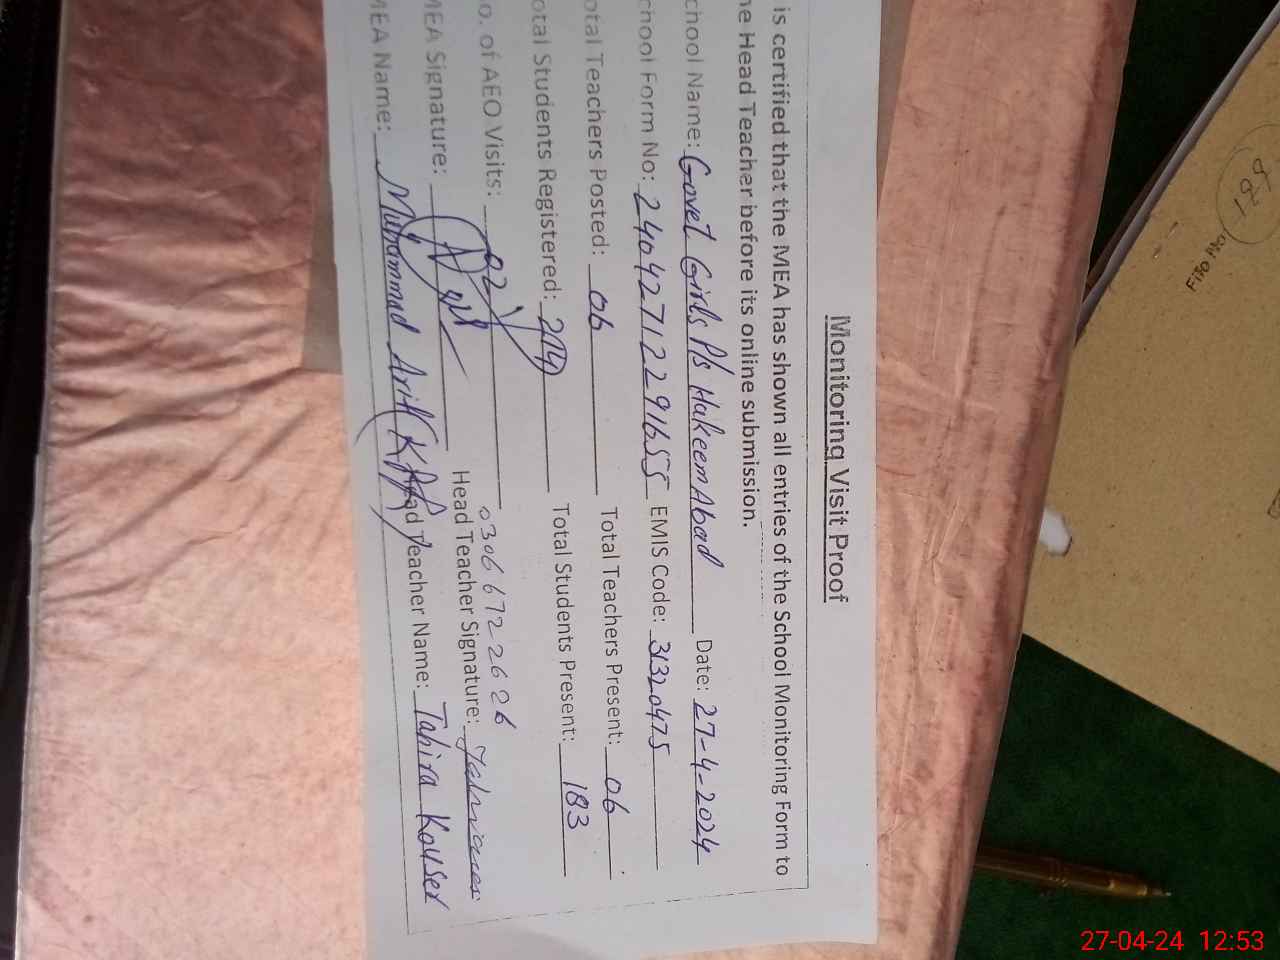 Monitoring Visit Proof
is certified that the MEA has shown all entries of the School Monitoring Form to
he Head Teacher before its online submission.
chool Name: Govet Girls P/s HakeemAbad Date: 27-4-2024
chool Form No: 24042712291655 EMIS Code: 31320475
otal Teachers Posted: 06 Total Teachers Present: 06
otal Students Registered: Total Students Present: 183
o. of AEO Visits: 02 03066722626
MEA Signature: Head Teacher Signature:
MEA Name: Muhammad Arif Head Teacher Name: Tahira Kouser
File No. 129
27-04-24 12:53